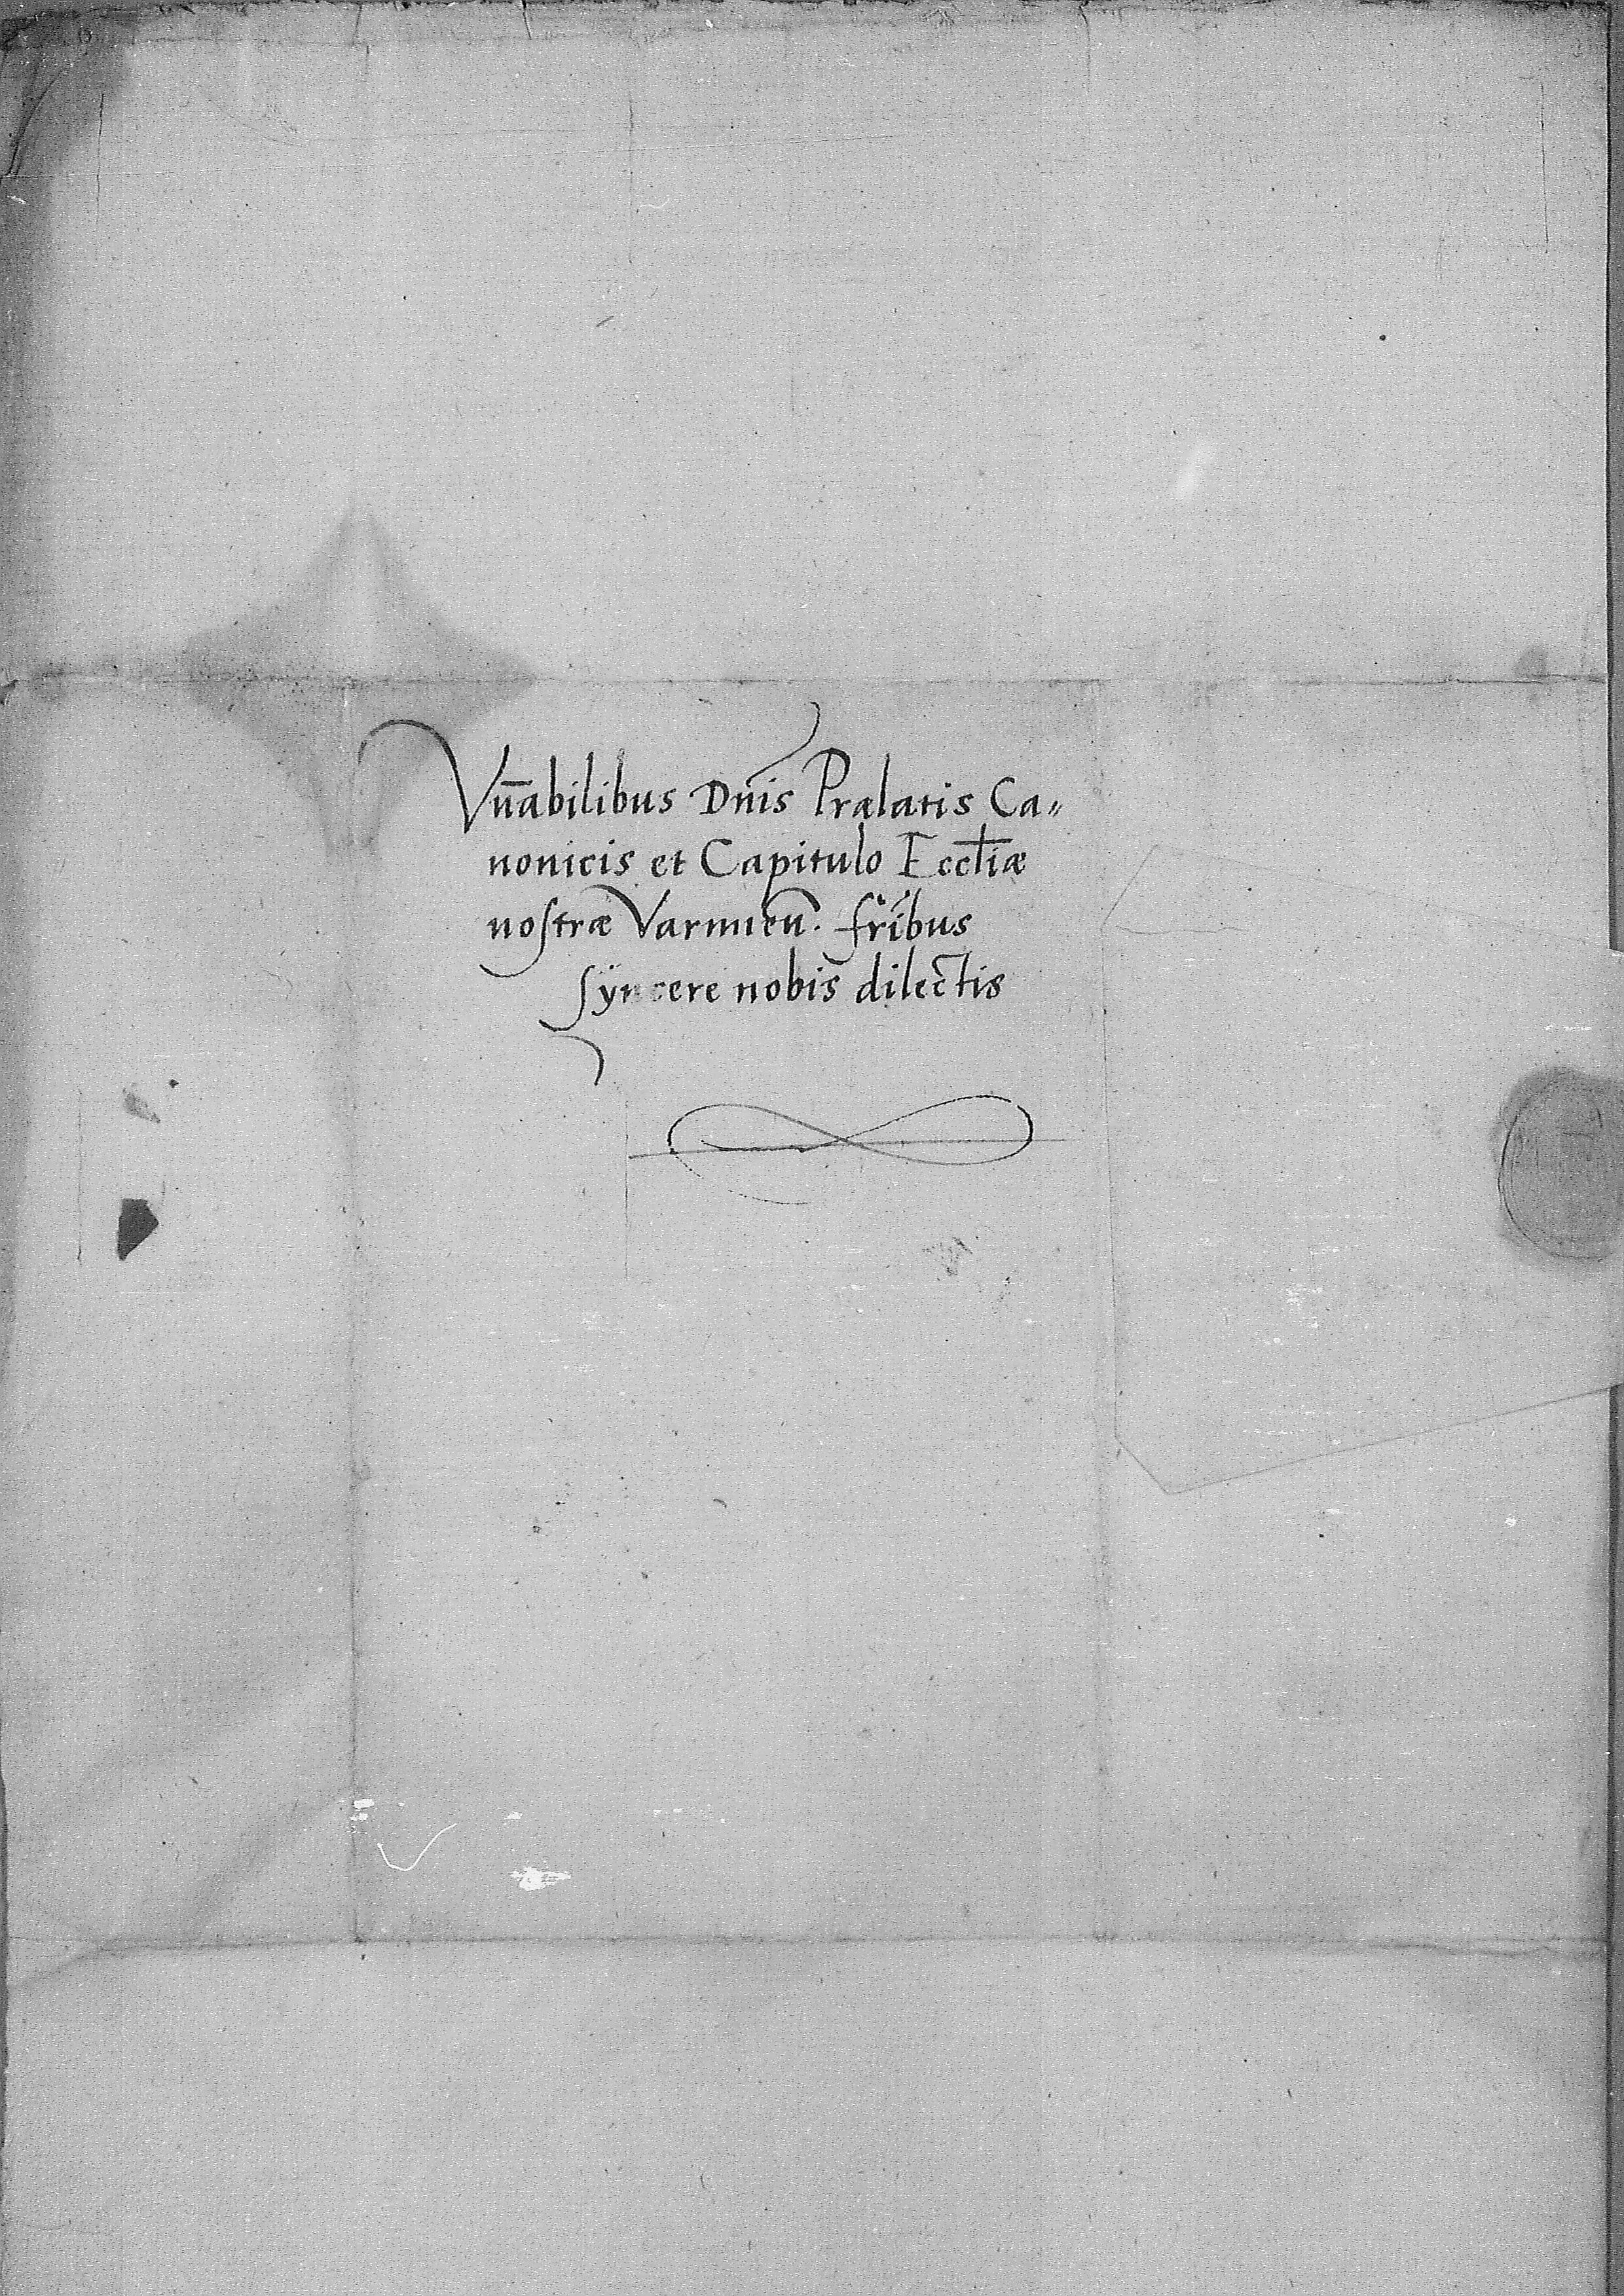 Vn̄abilibus Dn̄is Prælatis Ca⸗
nonicis et Capitulo Eccl̄iæ
nostræ Varmien̄. fr̄ibus
syncere nobis dilectis